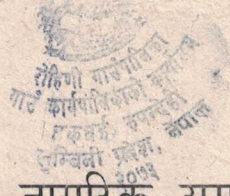 रोहिणी गाउँपालिका
गाउँ कार्यपालिकाको कार्यालय
रुपन्देही
लुम्बिनी प्रदेश, नेपाल
२०७३
नागरिक